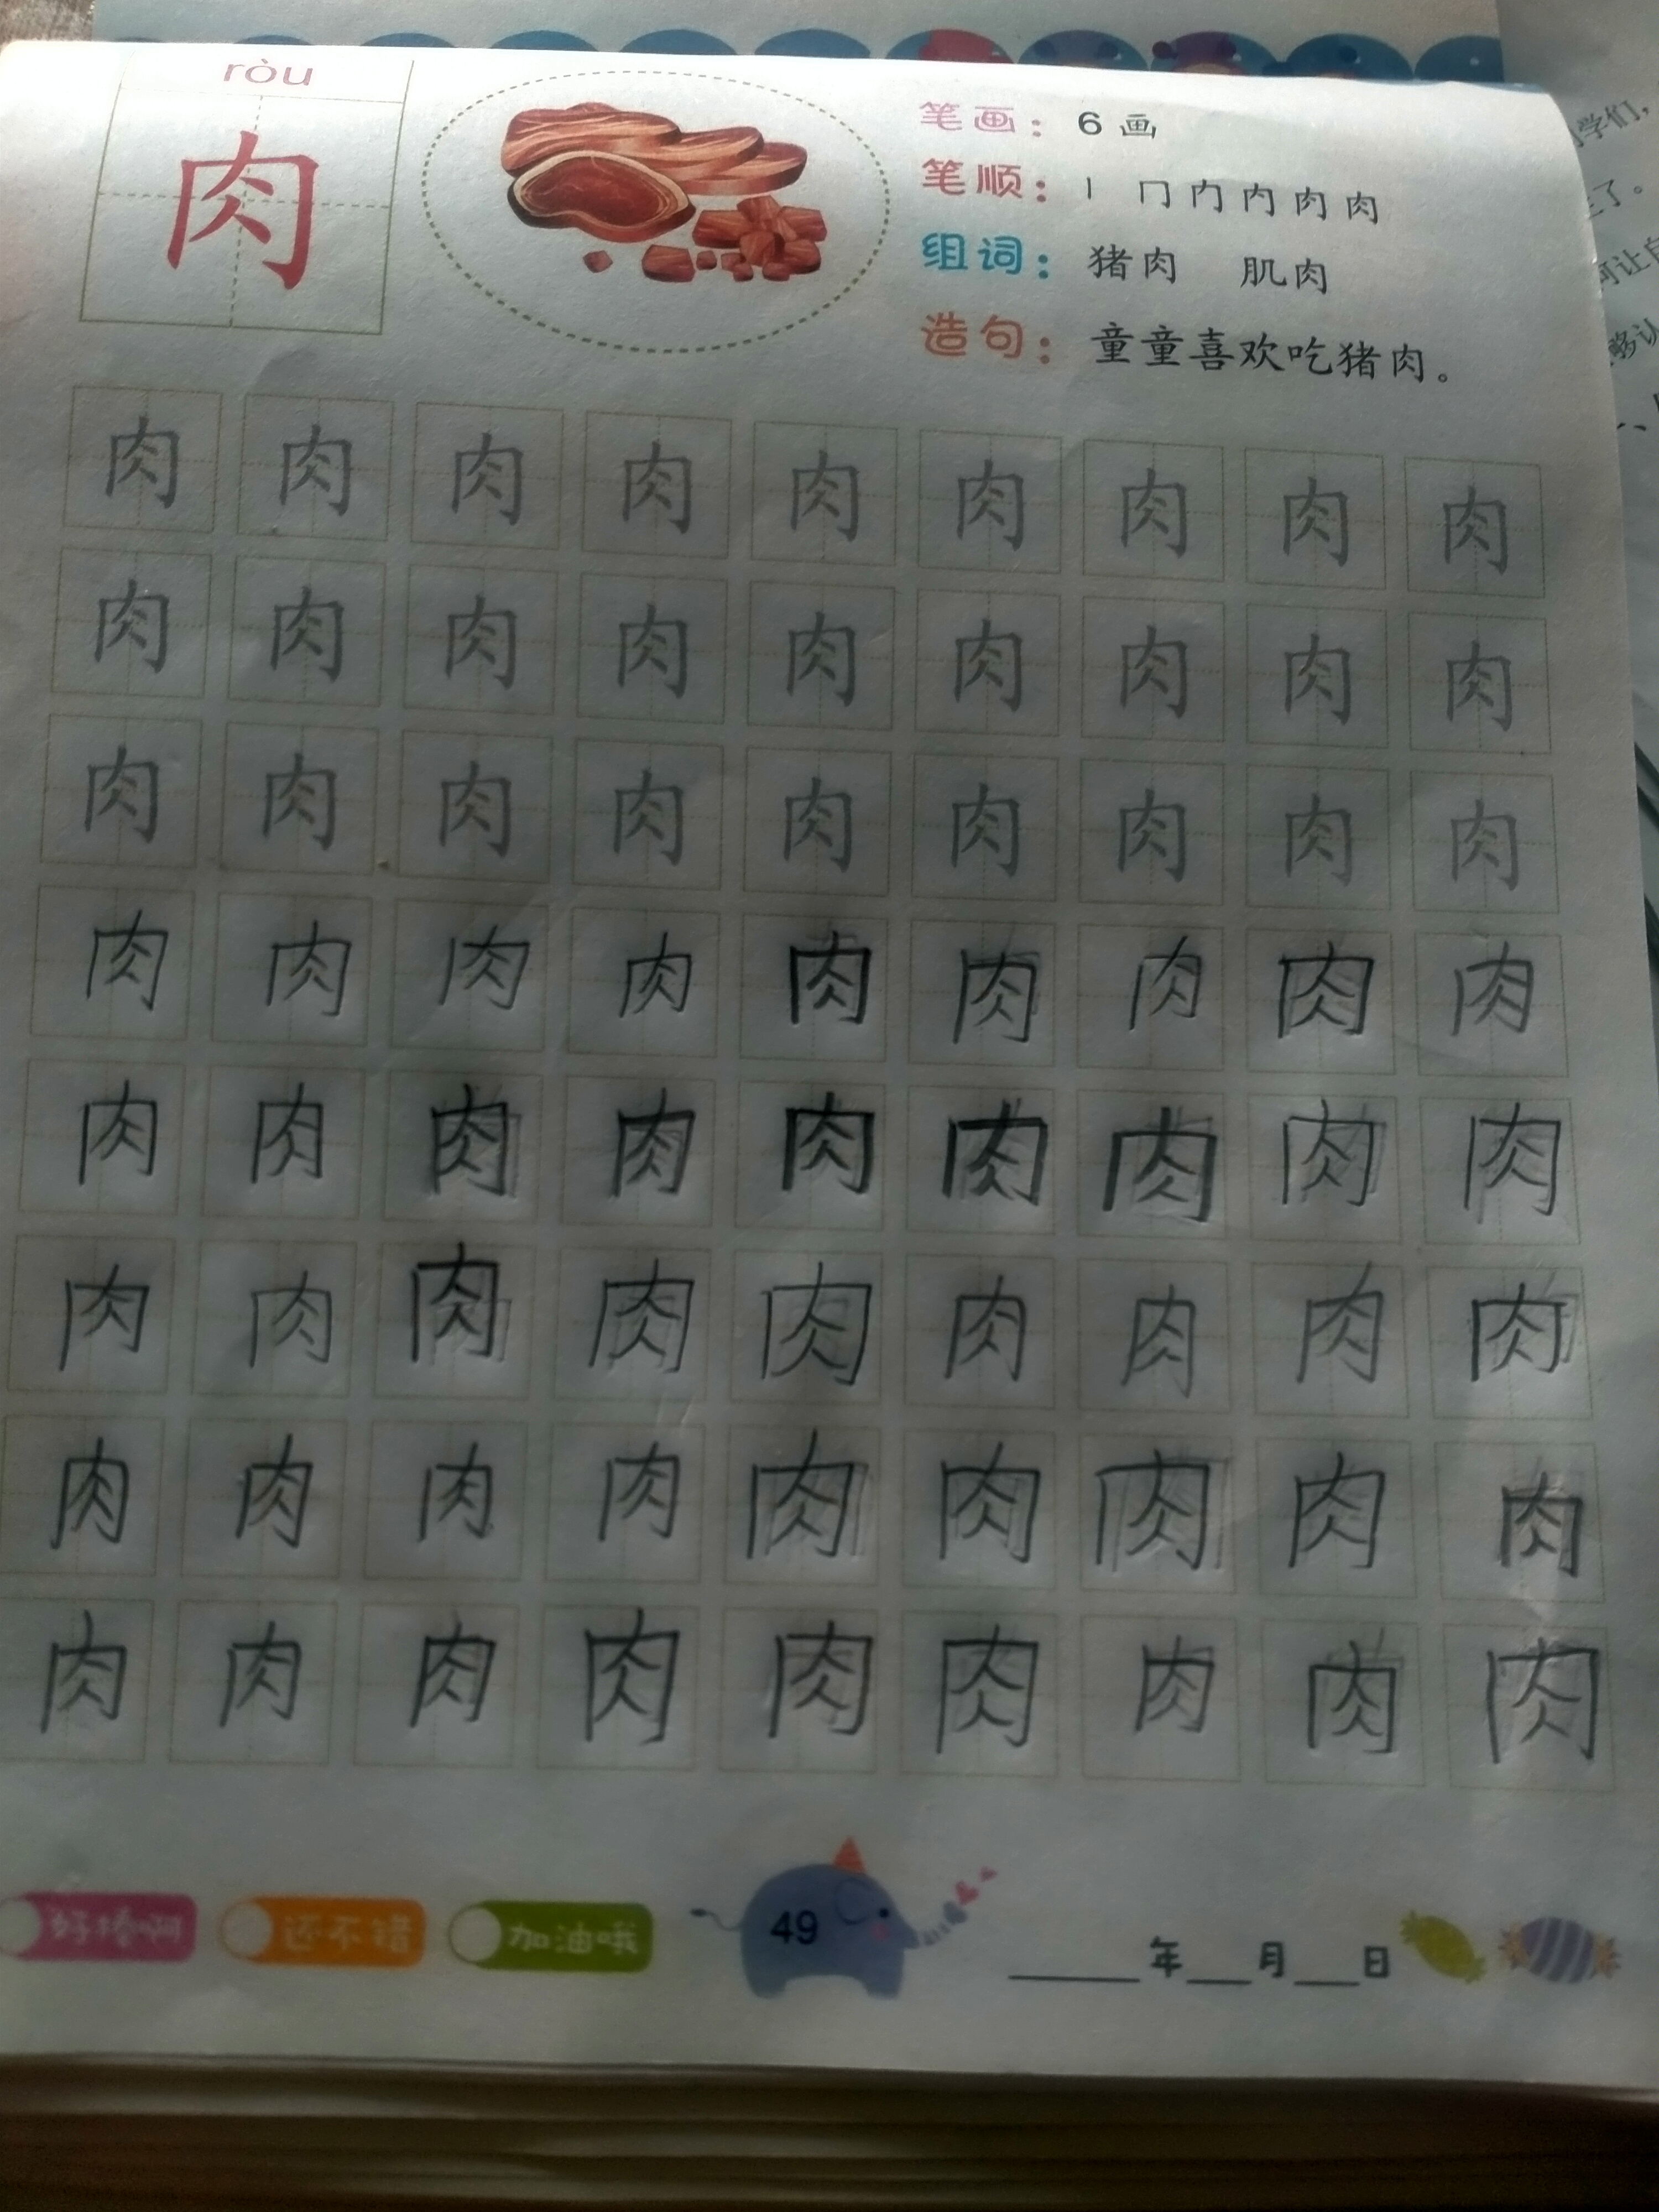 ròu
肉
笔画：6画
笔顺：丨 冂 内 内 肉 肉
组词：猪肉 肌肉
造句：童童喜欢吃猪肉。
肉 肉 肉 肉 肉 肉 肉 肉 肉
肉 肉 肉 肉 肉 肉 肉 肉 肉
肉 肉 肉 肉 肉 肉 肉 肉 肉
肉 肉 肉 肉 肉 肉 肉 肉 肉
肉 肉 肉 肉 肉 肉 肉 肉 肉
肉 肉 肉 肉 肉 肉 肉 肉 肉
肉 肉 肉 肉 肉 肉 肉 肉 肉
肉 肉 肉 肉 肉 肉 肉 肉 肉
好棒啊 还不错 加油哦 49 年 月 日
学们，
了。
何让自
够认